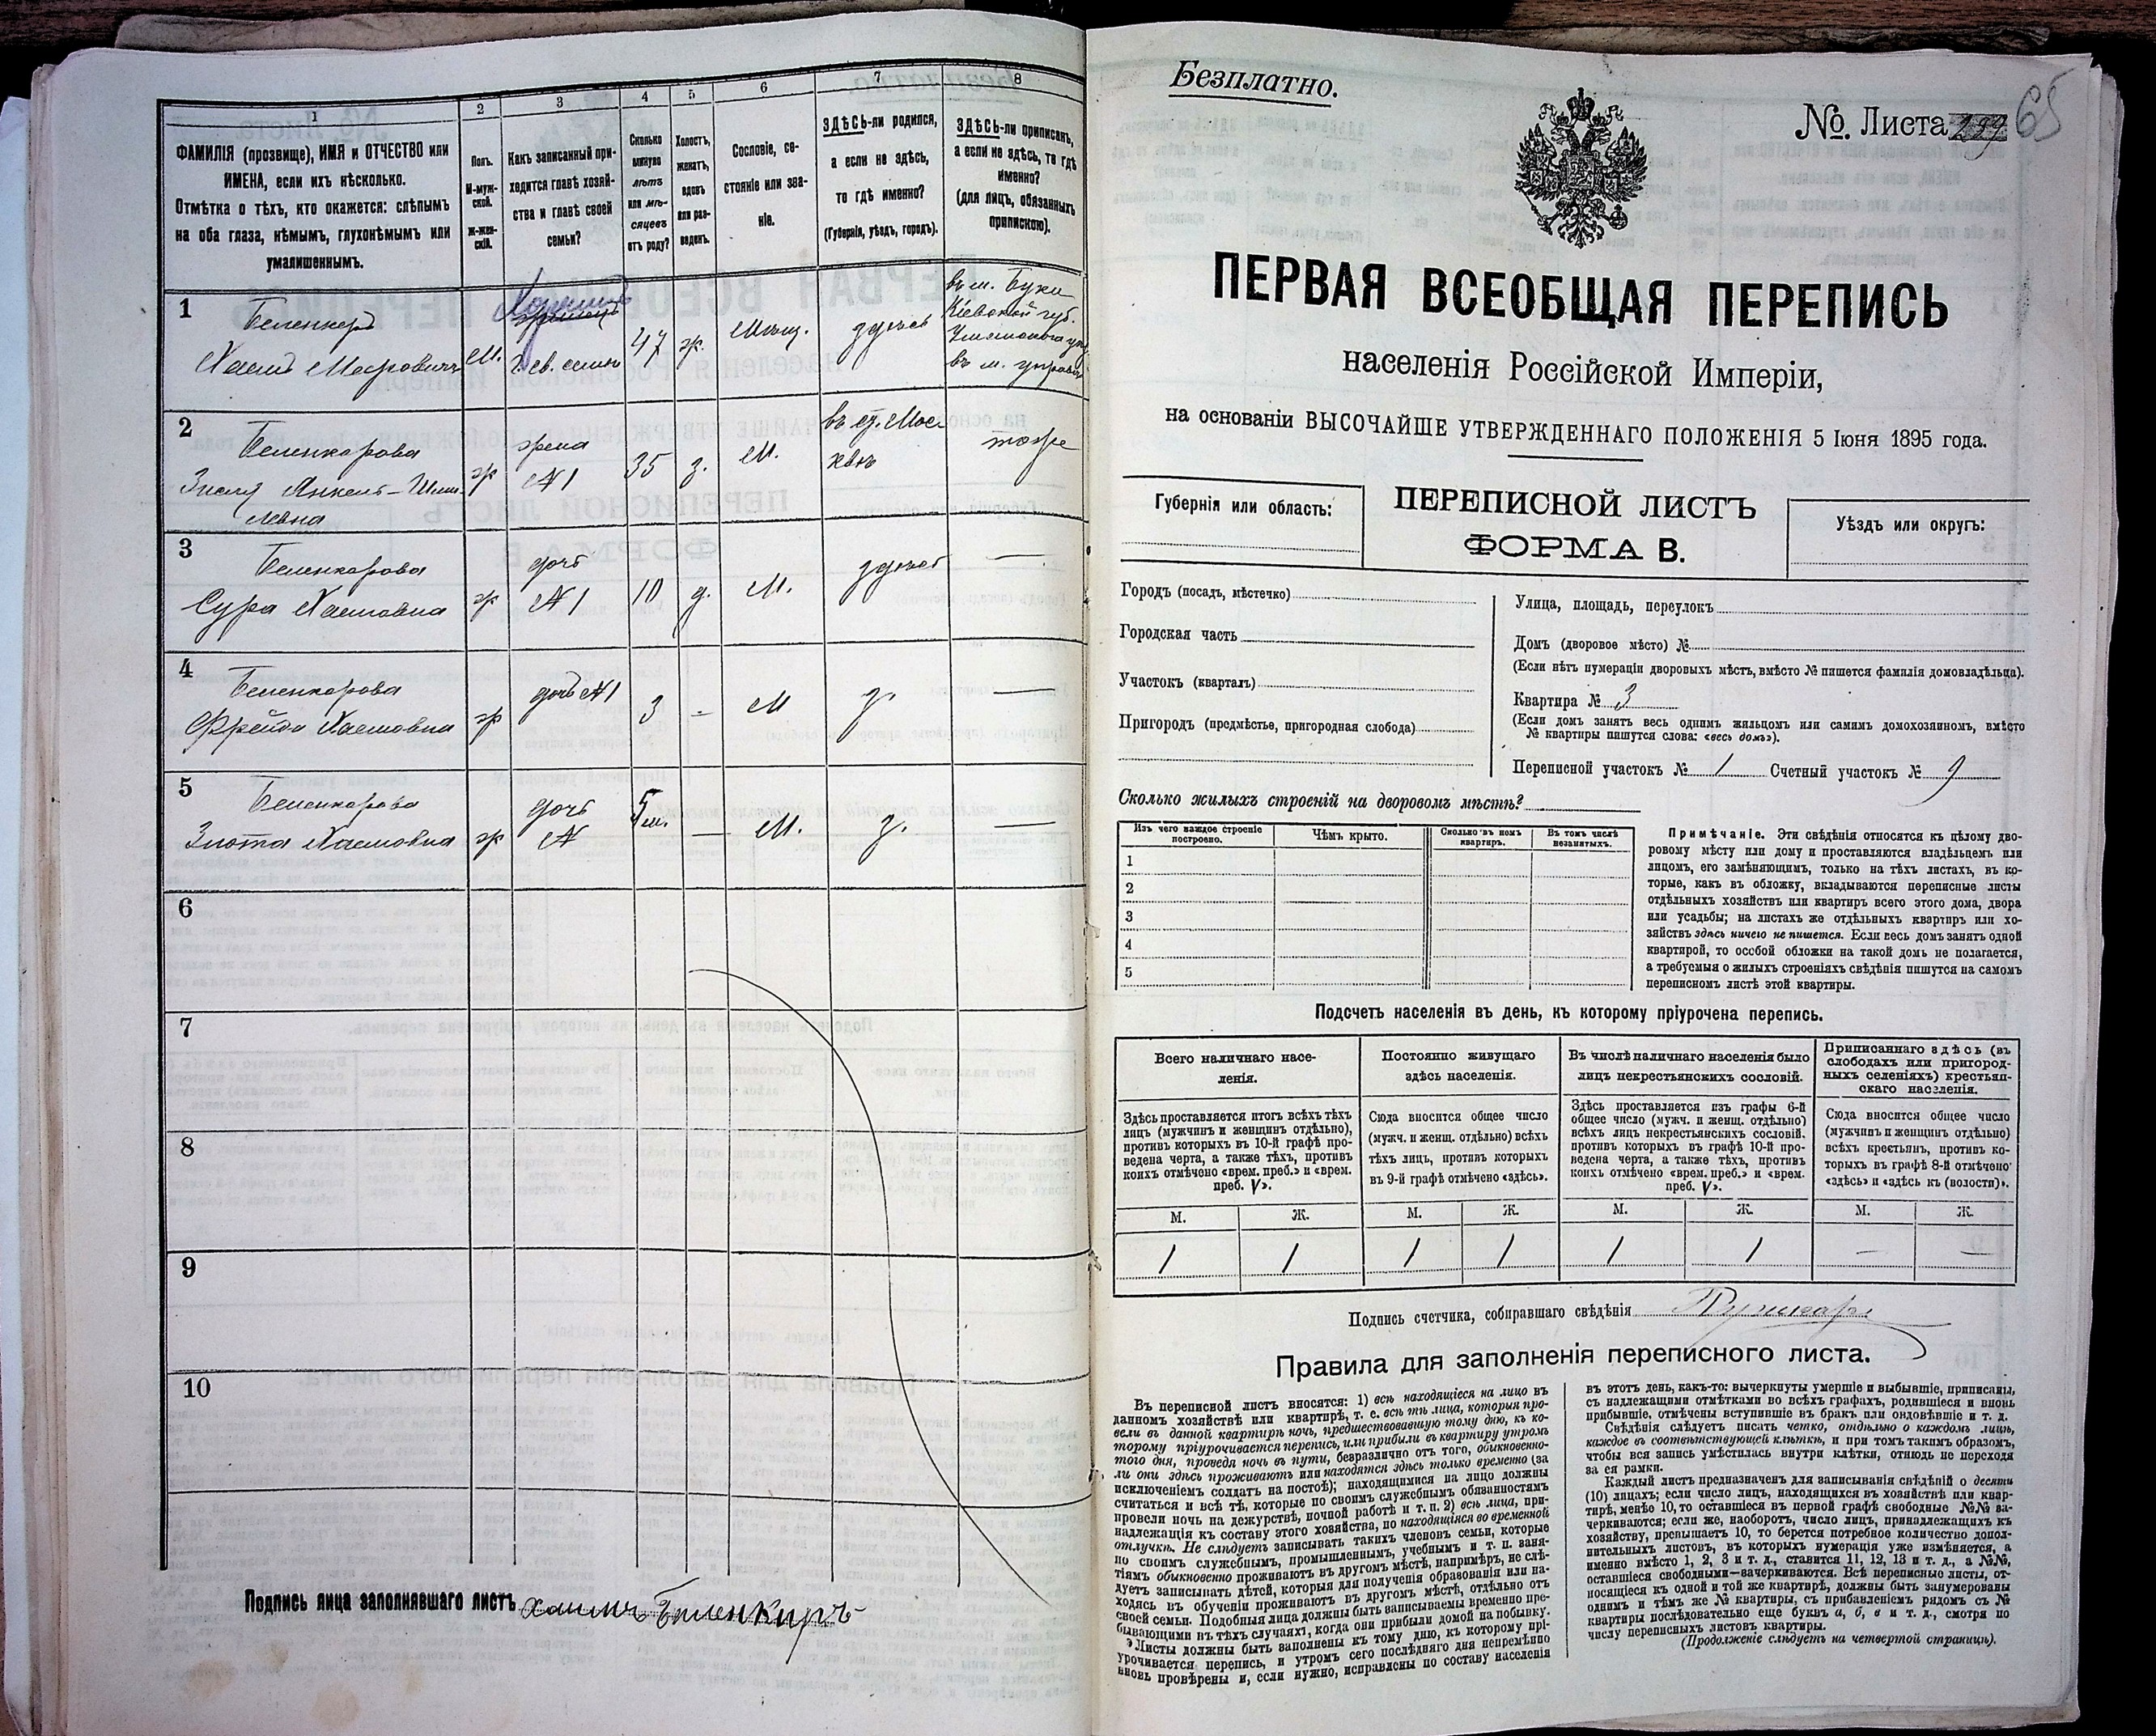 1
2
3
4
5
6
7
8
ФАМИЛІЯ (прозвище), ИМЯ и ОТЧЕСТВО или
ИМЕНА, если ихъ нѣсколько.
Отмѣтка о тѣхъ, кто окажется: слѣпымъ
на оба глаза, нѣмымъ, глухонѣмымъ или
умалишеннымъ.
Полъ.
М-муж-
ской.
Ж-жен-
скій.
Какъ записанный при-
ходится главѣ хозяй-
ства и главѣ своей
семьи?
Сколько
минуло
лѣтъ
или мѣ-
сяцевъ
отъ роду?
Холостъ,
женатъ,
вдовъ
или раз-
веденъ.
Сословіе, со-
стояніе или зва-
ніе.
ЗДѢСЬ-ли родился,
а если не здѣсь,
то гдѣ именно?
(Губернія, уѣздъ, городъ).
ЗДѢСЬ-ли приписанъ,
а если не здѣсь, то гдѣ
именно?
(для лицъ, обязанныхъ
припискою).
1
Беленкеръ
Хаимъ Мееровичъ
М.
г. св. семьи
47
ж.
Мѣщ.
здѣсь
въ м. Буки
Кіевской губ.
2
Беленкерова
ж
жена
№ 1
35
з.
М.
въ г. Мос-
квѣ
тоже
3
Беленкерова
Сура Хаимовна
ж
дочь
№ 1
10
д.
М.
здѣсь
—
4
Беленкерова
Фрейда Хаимовна
ж
дочь № 1
3
-
М
з.
—
5
Беленкерова
Злота Хаимовна
ж
дочь
№
5 м.
—
М.
з.
—
6
7
8
9
10
Подпись лица заполнявшаго листъ Хаимъ Беленкиръ
Безплатно.
№. Листа 299 65
ПЕРВАЯ ВСЕОБЩАЯ ПЕРЕПИСЬ
населенія Россійской Имперіи,
на основаніи ВЫСОЧАЙШЕ УТВЕРЖДЕННАГО ПОЛОЖЕНІЯ 5 Іюня 1895 года.
Губернія или область:
ПЕРЕПИСНОЙ ЛИСТЪ
ФОРМА В.
Уѣздъ или округъ:
Городъ (посадъ, мѣстечко)
Городская часть
Участокъ (кварталъ)
Пригородъ (предмѣстье, пригородная слобода)
Улица, площадь, переулокъ
Домъ (дворовое мѣсто) №
(Если нѣтъ нумераціи дворовыхъ мѣстъ, вмѣсто № пишется фамилія домовладѣльца).
Квартира № 3
(Если домъ занятъ весь однимъ жильцомъ или самимъ домохозяиномъ, вмѣсто
№ квартиры пишутся слова: «весь домъ»).
Переписной участокъ № 1 Счетный участокъ № 9
Сколько жилыхъ строеній на дворовомъ мѣстѣ?
Изъ чего каждое строеніе
построено.
Чѣмъ крыто.
Сколько въ немъ
квартиръ.
Въ томъ числѣ
незанятыхъ.
1
2
3
4
5
Примѣчаніе. Эти свѣдѣнія относятся къ цѣлому дво-
ровому мѣсту или дому и проставляются владѣльцемъ или
лицомъ, его замѣняющимъ, только на тѣхъ листахъ, въ ко-
торые, какъ въ обложку, вкладываются переписные листы
отдѣльныхъ хозяйствъ или квартиръ всего этого дома, двора
или усадьбы; на листахъ же отдѣльныхъ квартиръ или хо-
зяйствъ здѣсь ничего не пишется. Если весь домъ занятъ одной
квартирой, то особой обложки на такой домъ не полагается,
а требуемыя о жилыхъ строеніяхъ свѣдѣнія пишутся на самомъ
переписномъ листѣ этой квартиры.
Подсчетъ населенія въ день, къ которому пріурочена перепись.
Всего наличнаго насе-
ленія.
Здѣсь проставляется итогъ всѣхъ тѣхъ
лицъ (мужчинъ и женщинъ отдѣльно),
противъ которыхъ въ 10-й графѣ про-
ведена черта, а также тѣхъ, противъ
коихъ отмѣчено «врем. преб.» и «врем.
преб. V».
Постоянно живущаго
здѣсь населенія.
Сюда вносится общее число
(мужч. и женщ. отдѣльно) всѣхъ
тѣхъ лицъ, противъ которыхъ
въ 9-й графѣ отмѣчено «здѣсь».
Въ числѣ наличнаго населенія было
лицъ некрестьянскихъ сословій.
Здѣсь проставляется изъ графы 6-й
общее число (мужч. и женщ. отдѣльно)
всѣхъ лицъ некрестьянскихъ сословій,
противъ которыхъ въ графѣ 10-й про-
ведена черта, а также тѣхъ, противъ
коихъ отмѣчено «врем. преб.» и «врем.
преб. V».
Приписаннаго здѣсь (въ
слободахъ или пригород-
ныхъ селеніяхъ) крестьян-
скаго населенія.
Сюда вносится общее число
(мужчинъ и женщинъ отдѣльно)
всѣхъ крестьянъ, противъ ко-
торыхъ въ графѣ 8-й отмѣчено
«здѣсь» и «здѣсь къ (волости)».
М. Ж. М. Ж. М. Ж. М. Ж.
1 1 1 1 1 1 — —
Подпись счетчика, собиравшаго свѣдѣнія
Правила для заполненія переписного листа.
Въ переписной листъ вносятся: 1) всѣ находящіеся на лицо въ
данномъ хозяйствѣ или квартирѣ, т. е. всѣ тѣ лица, которыя про-
вели въ данной квартирѣ ночь, предшествовавшую тому дню, къ ко-
торому пріурочивается перепись, или прибыли въ квартиру утромъ
того дня, проведя ночь въ пути, безразлично отъ того, обыкновенно-
ли они здѣсь проживаютъ или находятся здѣсь только временно (за
исключеніемъ солдатъ на постоѣ); находящимися на лицо должны
считаться и всѣ тѣ, которые по своимъ служебнымъ обязанностямъ
провели ночь на дежурствѣ, ночной работѣ и т. п. 2) всѣ лица, при-
надлежащія къ составу этого хозяйства, но находящіяся во временной
отлучкѣ. Не слѣдуетъ записывать такихъ членовъ семьи, которые
по своимъ служебнымъ, промышленнымъ, учебнымъ и т. п. заня-
тіямъ обыкновенно проживаютъ въ другомъ мѣстѣ, напримѣръ, не слѣ-
дуетъ записывать дѣтей, которыя для полученія образованія или на-
ходясь въ обученіи проживаютъ въ другомъ мѣстѣ, отдѣльно отъ
своей семьи. Подобныя лица должны быть записываемы временно пре-
бывающими въ тѣхъ случаяхъ, когда они прибыли домой на побывку.
Листы должны быть заполнены къ тому дню, къ которому прі-
урочивается перепись, и утромъ сего послѣдняго дня непремѣнно
вновь провѣрены и, если нужно, исправлены по составу населенія
въ этотъ день, какъ-то: вычеркнуты умершіе и выбывшіе, приписаны,
съ надлежащими отмѣтками во всѣхъ графахъ, родившіеся и вновь
прибывшіе, отмѣчены вступившіе въ бракъ или овдовѣвшіе и т. д.
Свѣдѣнія слѣдуетъ писать четко, отдѣльно о каждомъ лицѣ,
каждое въ соотвѣтствующей клѣткѣ, и при томъ такимъ образомъ,
чтобы вся запись умѣстилась внутри клѣтки, отнюдь не переходя
за ея рамки.
Каждый листъ предназначенъ для записыванія свѣдѣній о десяти
(10) лицахъ; если число лицъ, находящихся въ хозяйствѣ или квар-
тирѣ, менѣе 10, то оставшіеся въ первой графѣ свободные №№ за-
черкиваются; если же, наоборотъ, число лицъ, принадлежащихъ къ
хозяйству, превышаетъ 10, то берется потребное количество допол-
нительныхъ листовъ, въ которыхъ нумерація уже измѣняется, а
именно вмѣсто 1, 2, 3 и т. д., ставится 11, 12, 13 и т. д., а №№,
оставшіеся свободными—вычеркиваются. Всѣ переписные листы, от-
носящіеся къ одной и той же квартирѣ, должны быть занумерованы
однимъ и тѣмъ же № квартиры, съ прибавленіемъ рядомъ съ №
квартиры послѣдовательно еще буквъ а, б, в и т. д., смотря по
числу переписныхъ листовъ квартиры.
(Продолженіе слѣдуетъ на четвертой страницѣ).